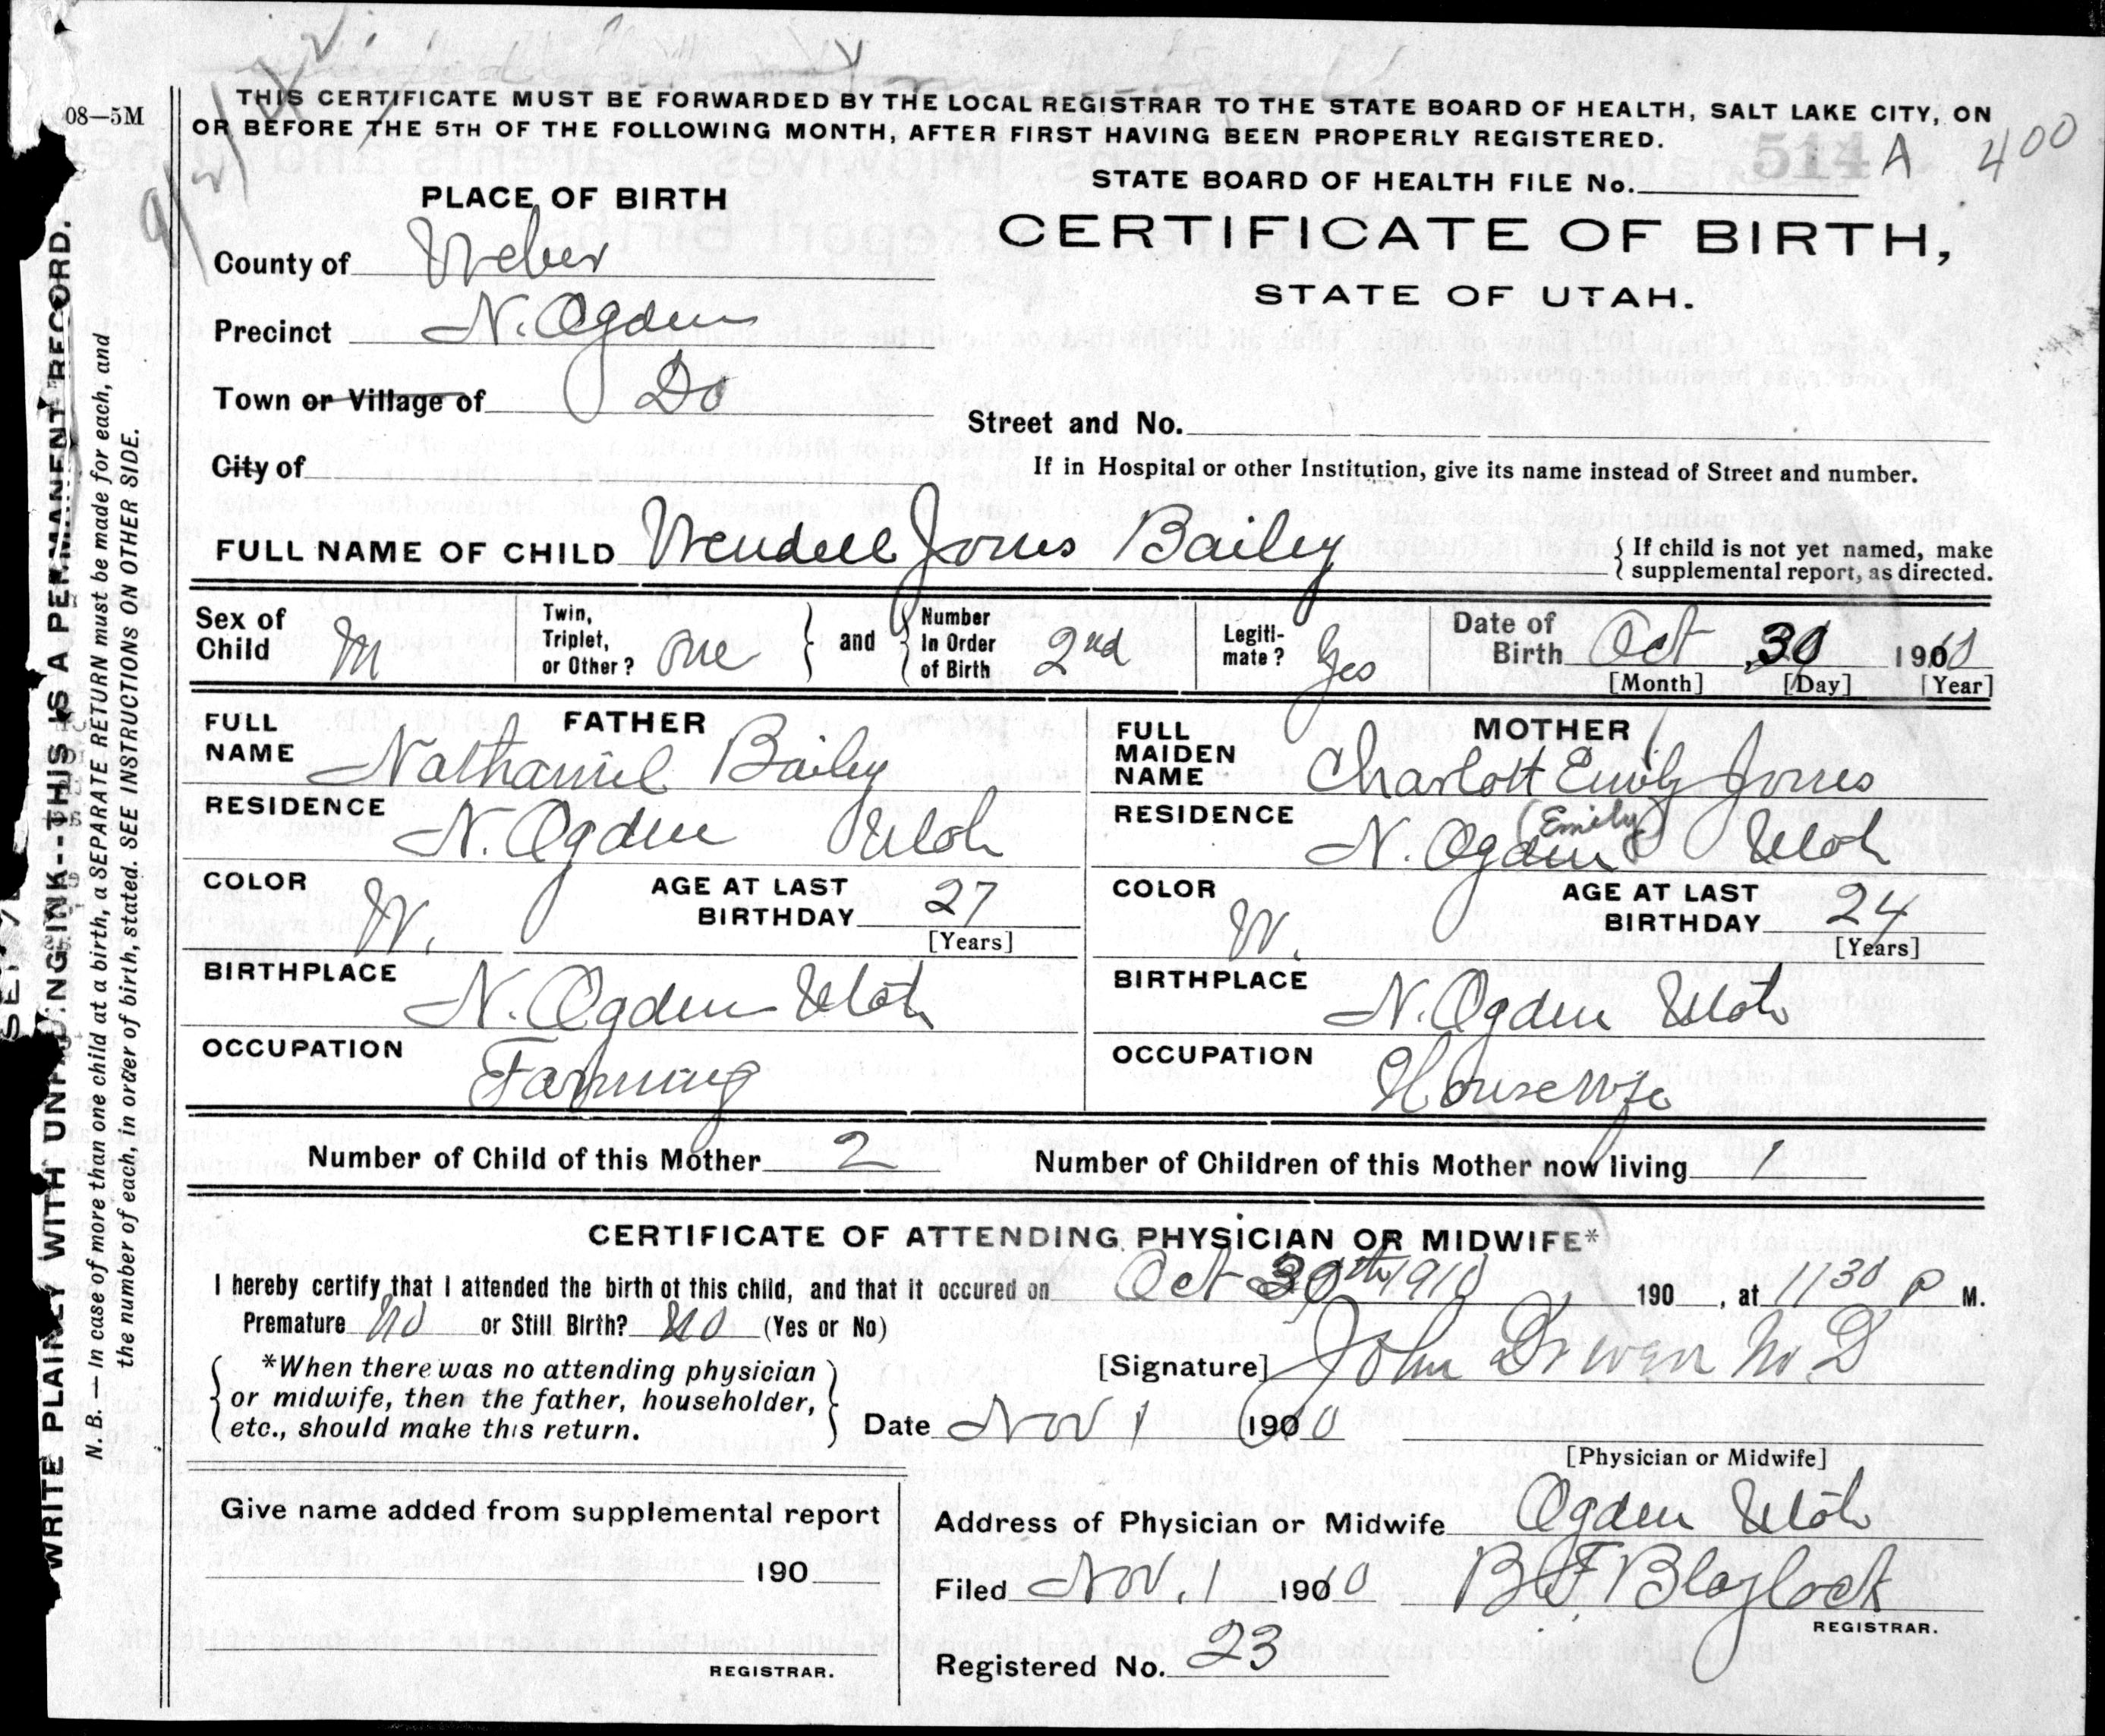 THIS CERTIFICATE MUST BE FORWARDED BY THE LOCAL REGISTRAR TO THE STATE BOARD OF HEALTH, SALT LAKE CITY, ON
OR BEFORE THE 5TH OF THE FOLLOWING MONTH, AFTER FIRST HAVING BEEN PROPERLY REGISTERED.
08—5M
514 A 400
STATE BOARD OF HEALTH FILE No.
PLACE OF BIRTH
CERTIFICATE OF BIRTH,
STATE OF UTAH.
County of Weber
Precinct N. Ogden
Town or Village of Do
Street and No.
City of
If in Hospital or other Institution, give its name instead of Street and number.
FULL NAME OF CHILD Wendell Jones Bailey
If child is not yet named, make
supplemental report, as directed.
Sex of Child M
Twin, Triplet, or Other? one and Number In Order of Birth 2nd
Legiti-mate? Yes
Date of Birth Oct 30 1910
[Month] [Day] [Year]
FATHER
FULL NAME Nathaniel Bailey
RESIDENCE N. Ogden Utah
COLOR W. AGE AT LAST BIRTHDAY 27
[Years]
BIRTHPLACE N. Ogden Utah
OCCUPATION Farming
MOTHER
FULL MAIDEN NAME Charlott Emily Jones
(Emily)
RESIDENCE N. Ogden Utah
COLOR W. AGE AT LAST BIRTHDAY 24
[Years]
BIRTHPLACE N. Ogden Utah
OCCUPATION Housewife
Number of Child of this Mother 2 Number of Children of this Mother now living 1
CERTIFICATE OF ATTENDING PHYSICIAN OR MIDWIFE*
I hereby certify that I attended the birth of this child, and that it occured on Oct 30th 1910 190 , at 11 30 P M.
Premature No or Still Birth? No (Yes or No)
*When there was no attending physician
or midwife, then the father, householder,
etc., should make this return.
[Signature] John M. D
Date Nov 1 1910
[Physician or Midwife]
Give name added from supplemental report
190
REGISTRAR.
Address of Physician or Midwife Ogden Utah
Filed Nov. 1 1910 B F Blaylock
REGISTRAR.
Registered No. 23
WRITE PLAINLY WITH UNFADING INK--THIS IS A PERMANENT RECORD.
N. B. — In case of more than one child at a birth, a SEPARATE RETURN must be made for each, and
the number of each, in order of birth, stated. SEE INSTRUCTIONS ON OTHER SIDE.